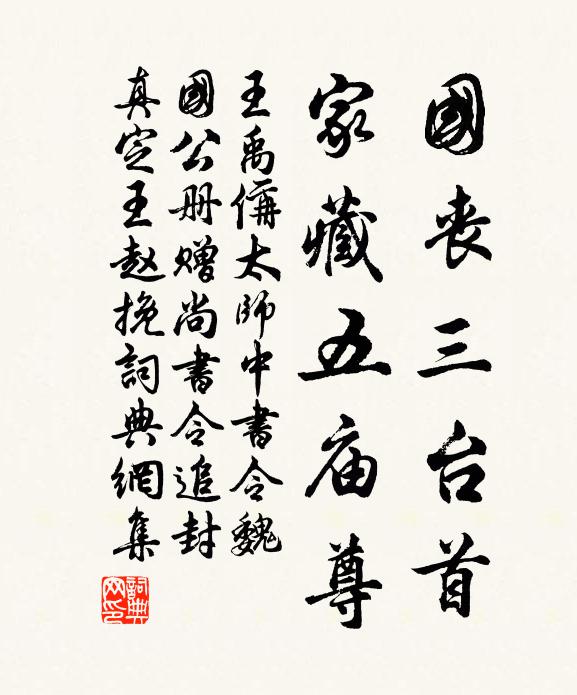 國丧三台首
家藏五庙尊
王禹偁太師中書令魏
國公册赠尚書令追封
真定王赵挽詞典網集
詞典
网印